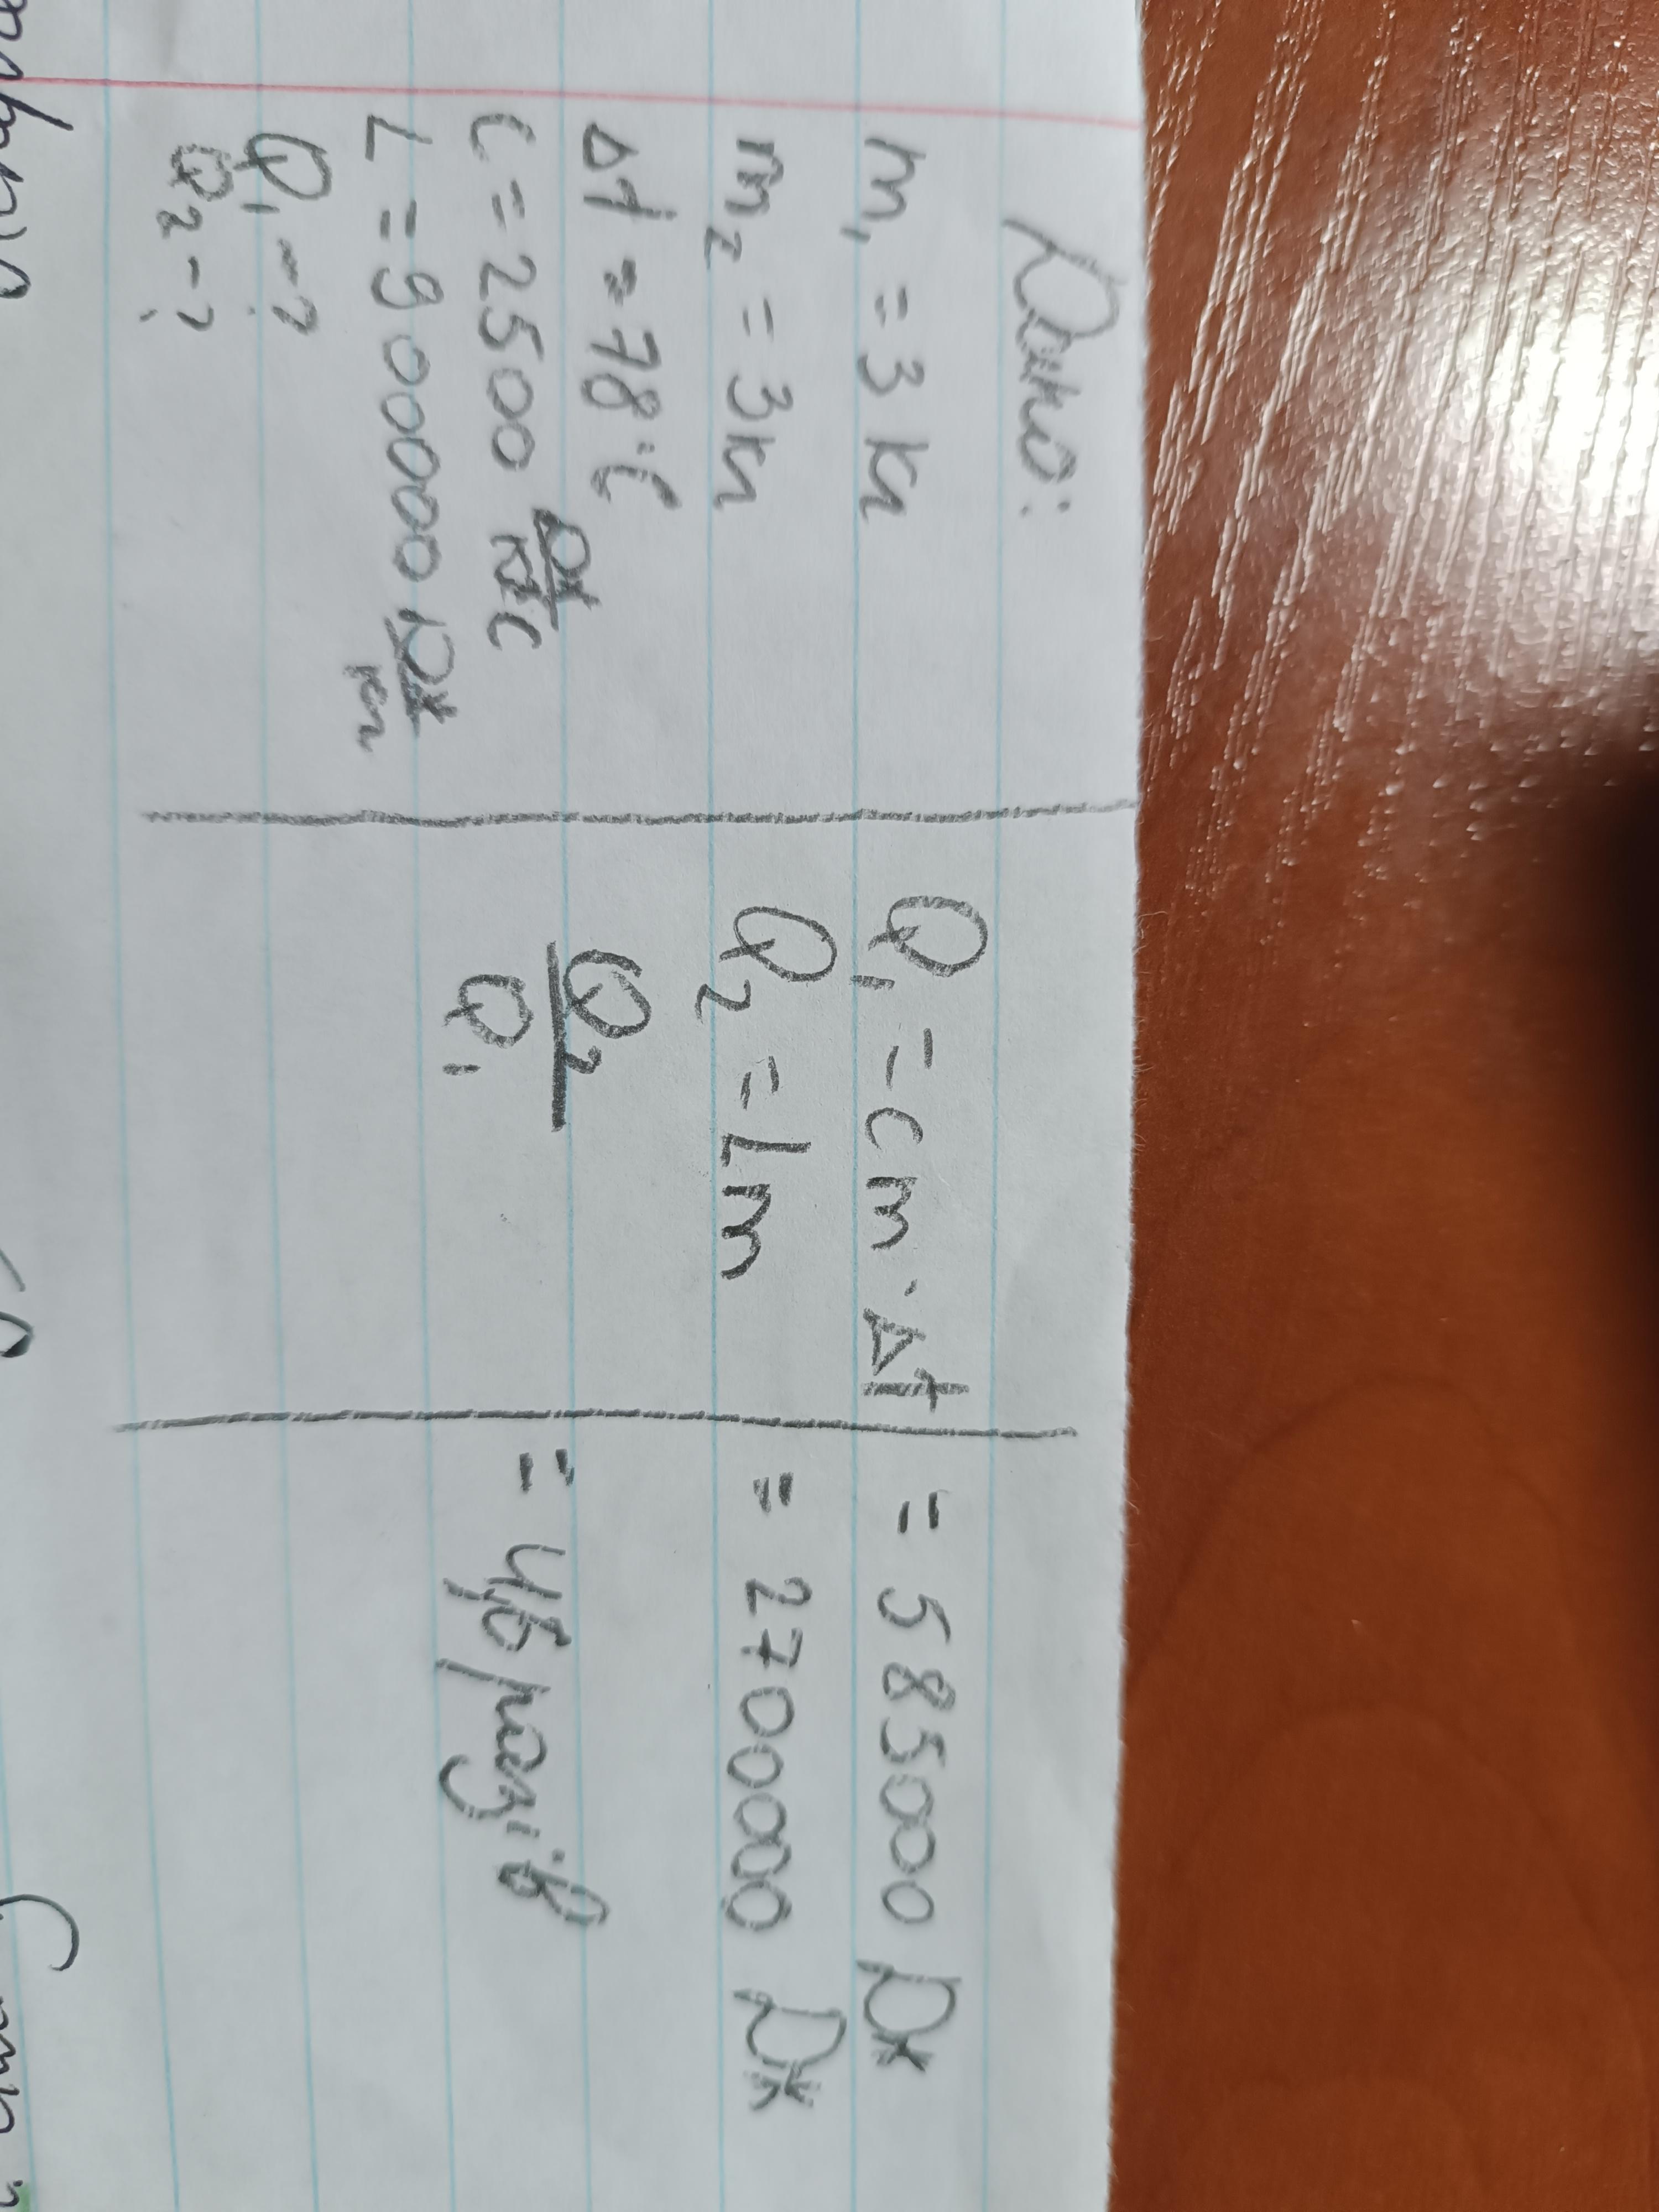 Дано:
m₁ = 3 кг
m₂ = 3 кг
Δt = 78°C
c = 2500 Дж/кг°C
L = 900000 Дж/кг
Q₁ - ?
Q₂ - ?
Q₁ = cm · Δt = 585000 Дж
Q₂ = Lm = 2700000 Дж
Q₂/Q₁ = 4,6 разів